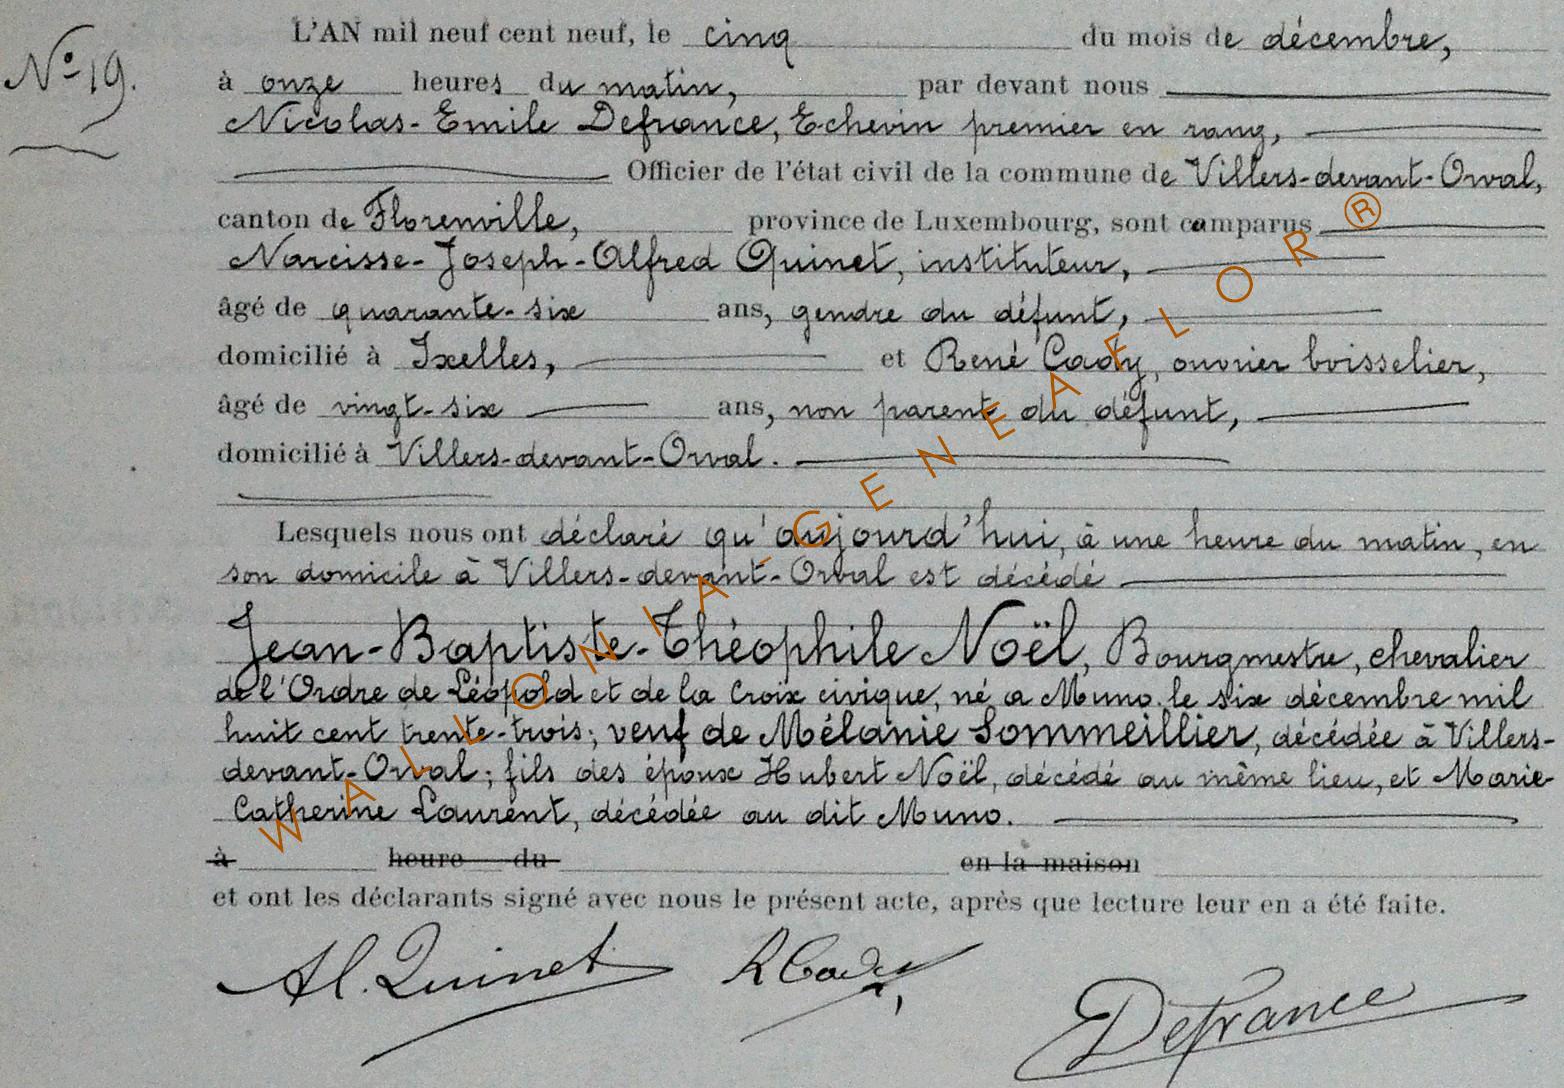 L'AN mil neuf cent neuf, le cinq du mois de décembre,
No 19.
à onze heures du matin, par devant nous
Nicolas-Emile Defrance, Echevin premier en rang,
Officier de l'état civil de la commune de Villers-devant-Orval,
canton de Florenville, province de Luxembourg, sont comparus
Narcisse-Joseph-Alfred Quinet, instituteur,
âgé de quarante-six ans, gendre du défunt,
domicilié à Ixelles, et René Cady, ouvrier boisselier,
âgé de vingt-six ans, non parent du défunt,
domicilié à Villers-devant-Orval.
Lesquels nous ont déclaré qu'aujourd'hui, à une heure du matin, en
son domicile à Villers-devant-Orval est décédé
Jean-Baptiste-Théophile Noël, Bourgmestre, chevalier
de l'Ordre de Léopold et de la Croix civique, né a Muno le six décembre mil
huit cent trente-trois; veuf de Mélanie Sommeillier, décédée à Villers-
devant-Orval; fils des époux Hubert Noël, décédé au même lieu, et Marie-
Catherine Laurent, décédée au dit Muno.
à heure du en la maison
et ont les déclarants signé avec nous le présent acte, après que lecture leur en a été faite.
Al. Quinet R Cady Defrance
WALLONIA-GENEAFLOR®